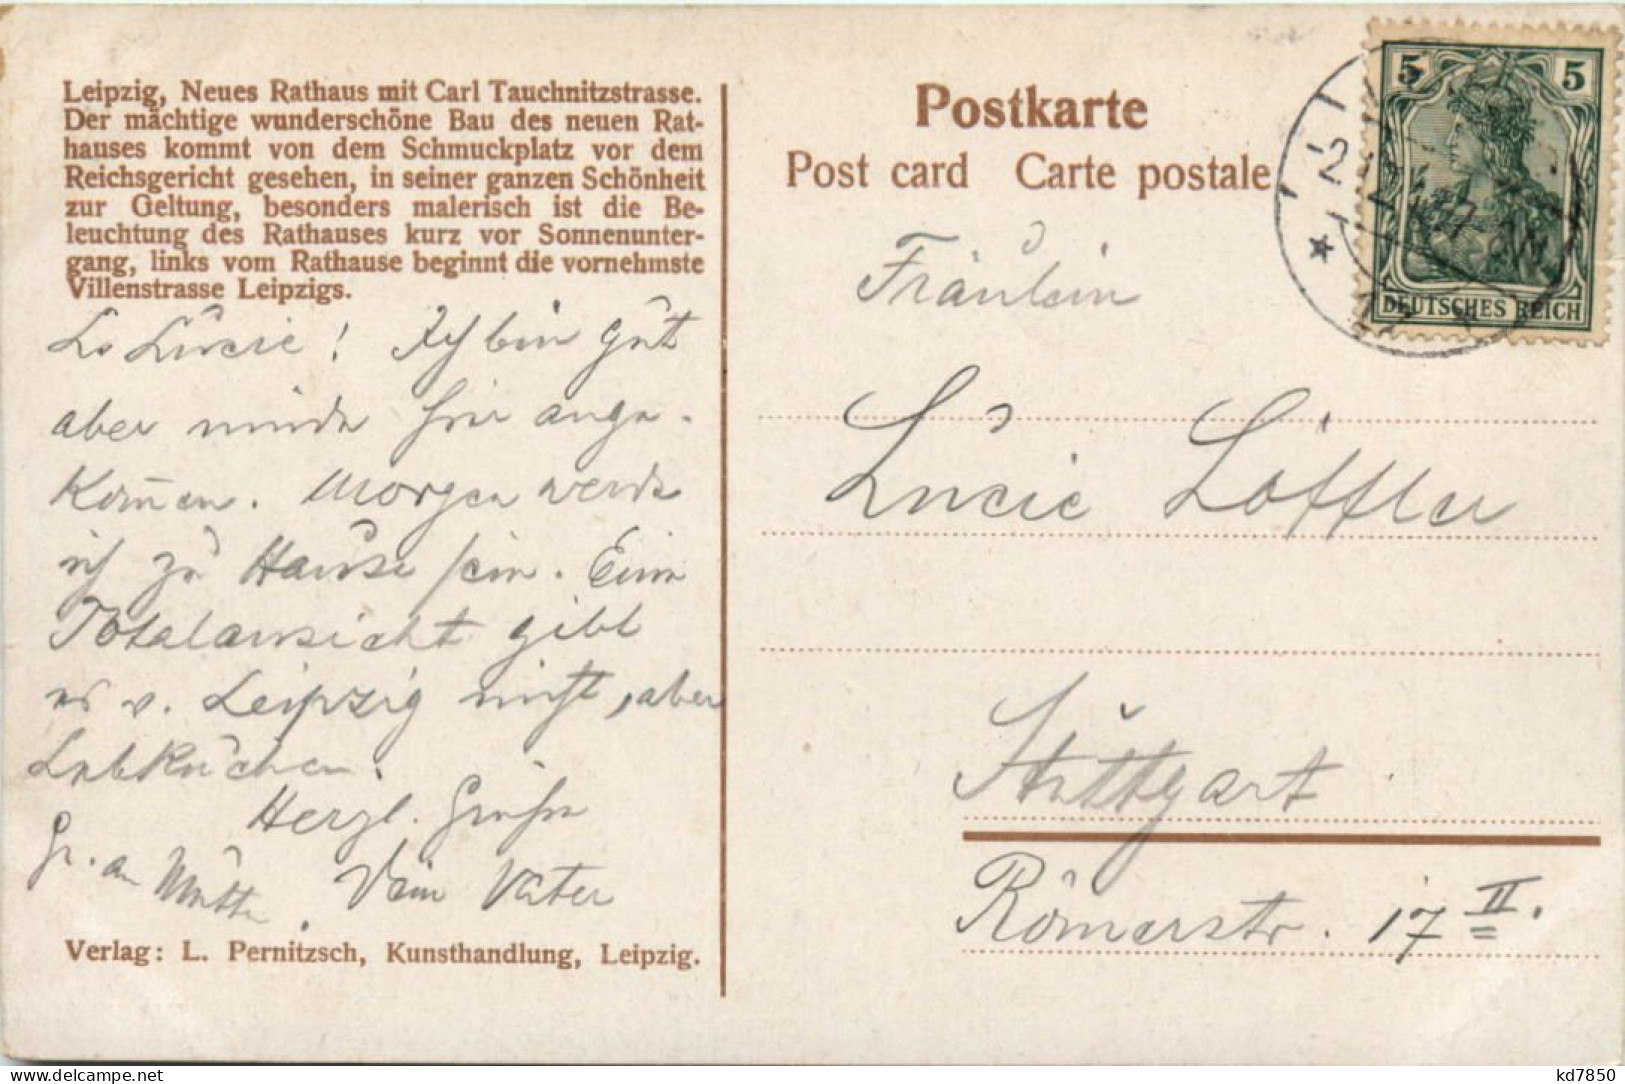 Leipzig, Neues Rathaus mit Carl Tauchnitzstrasse.
Der mächtige wunderschöne Bau des neuen Rat-
hauses kommt von dem Schmuckplatz vor dem
Reichsgericht gesehen, in seiner ganzen Schönheit
zur Geltung, besonders malerisch ist die Be-
leuchtung des Rathauses kurz vor Sonnenunter-
gang, links vom Rathause beginnt die vornehmste
Villenstrasse Leipzigs.
Lb Lucie! Ich bin gut
aber müde hier ange-
kom̄en. Morgen werde
ich zu Hause sein. Eine
Totalansicht gibt
es v. Leipzig nicht, aber
Lebkuchen.
Herzl. Grüße
Gr. an Mutter. Dein Vater
Verlag: L. Pernitzsch, Kunsthandlung, Leipzig.
Postkarte
Post card Carte postale
5 5
DEUTSCHES REICH
Fräulein
Lucie Löffler
Stuttgart
Römerstr. 17 II.
kd7850